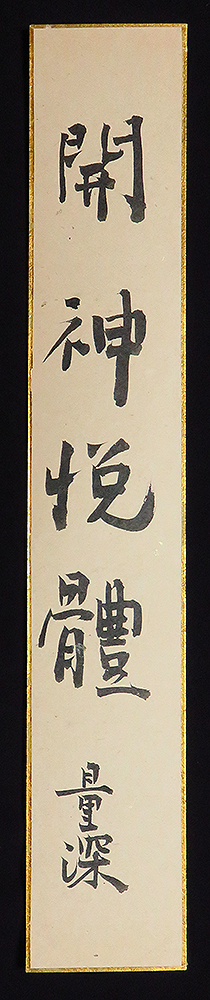 開神悦體
量深